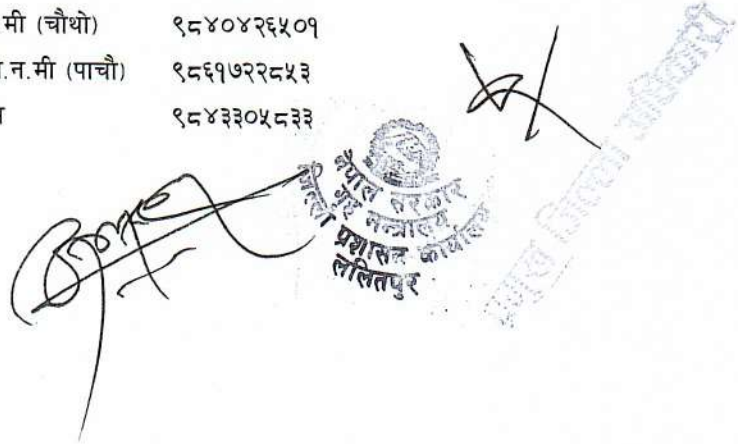 मी (चौथो) ९८४०४२६५०१
.न.मी (पाचौ) ९८६१७२२८५३
९८४३३०५८३३
नेपाल सरकार
गृह मन्त्रालय
जिल्ला प्रशासन कार्यालय
ललितपुर
प्रमुख जिल्ला अधिकारी